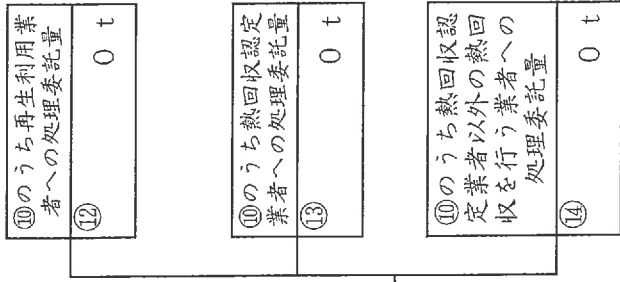 ⑩のうち再生利用業
者への処理委託量
⑫
0 t
⑩のうち熱回収認定
業者への処理委託量
⑬
0 t
⑩のうち熱回収認
定業者以外の熱回
収を行う業者への
処理委託量
⑭
0 t